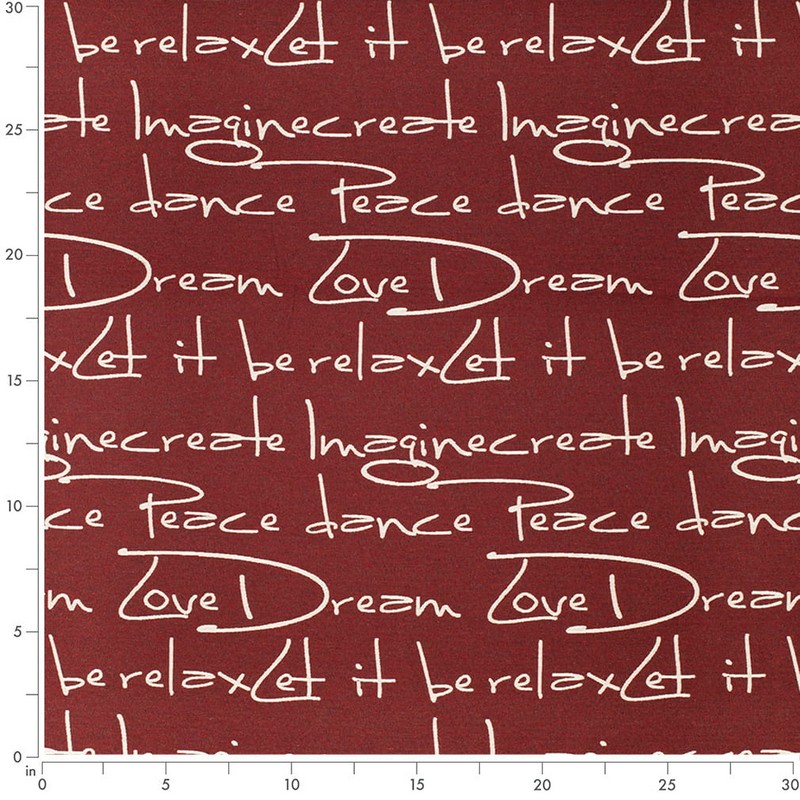 30
be relax Let it be relax Let it
25
ate Imagine create Imagine crea
ce dance Peace dance Peac
20
Dream Love Dream Love
x Let it be relax Let it be relax
15
gine create Imagine create Imagi
ce Peace dance Peace danc
10
m Love Dream Love Dream
5
be relax Let it be relax Let it
0
in
0 5 10 15 20 25 30